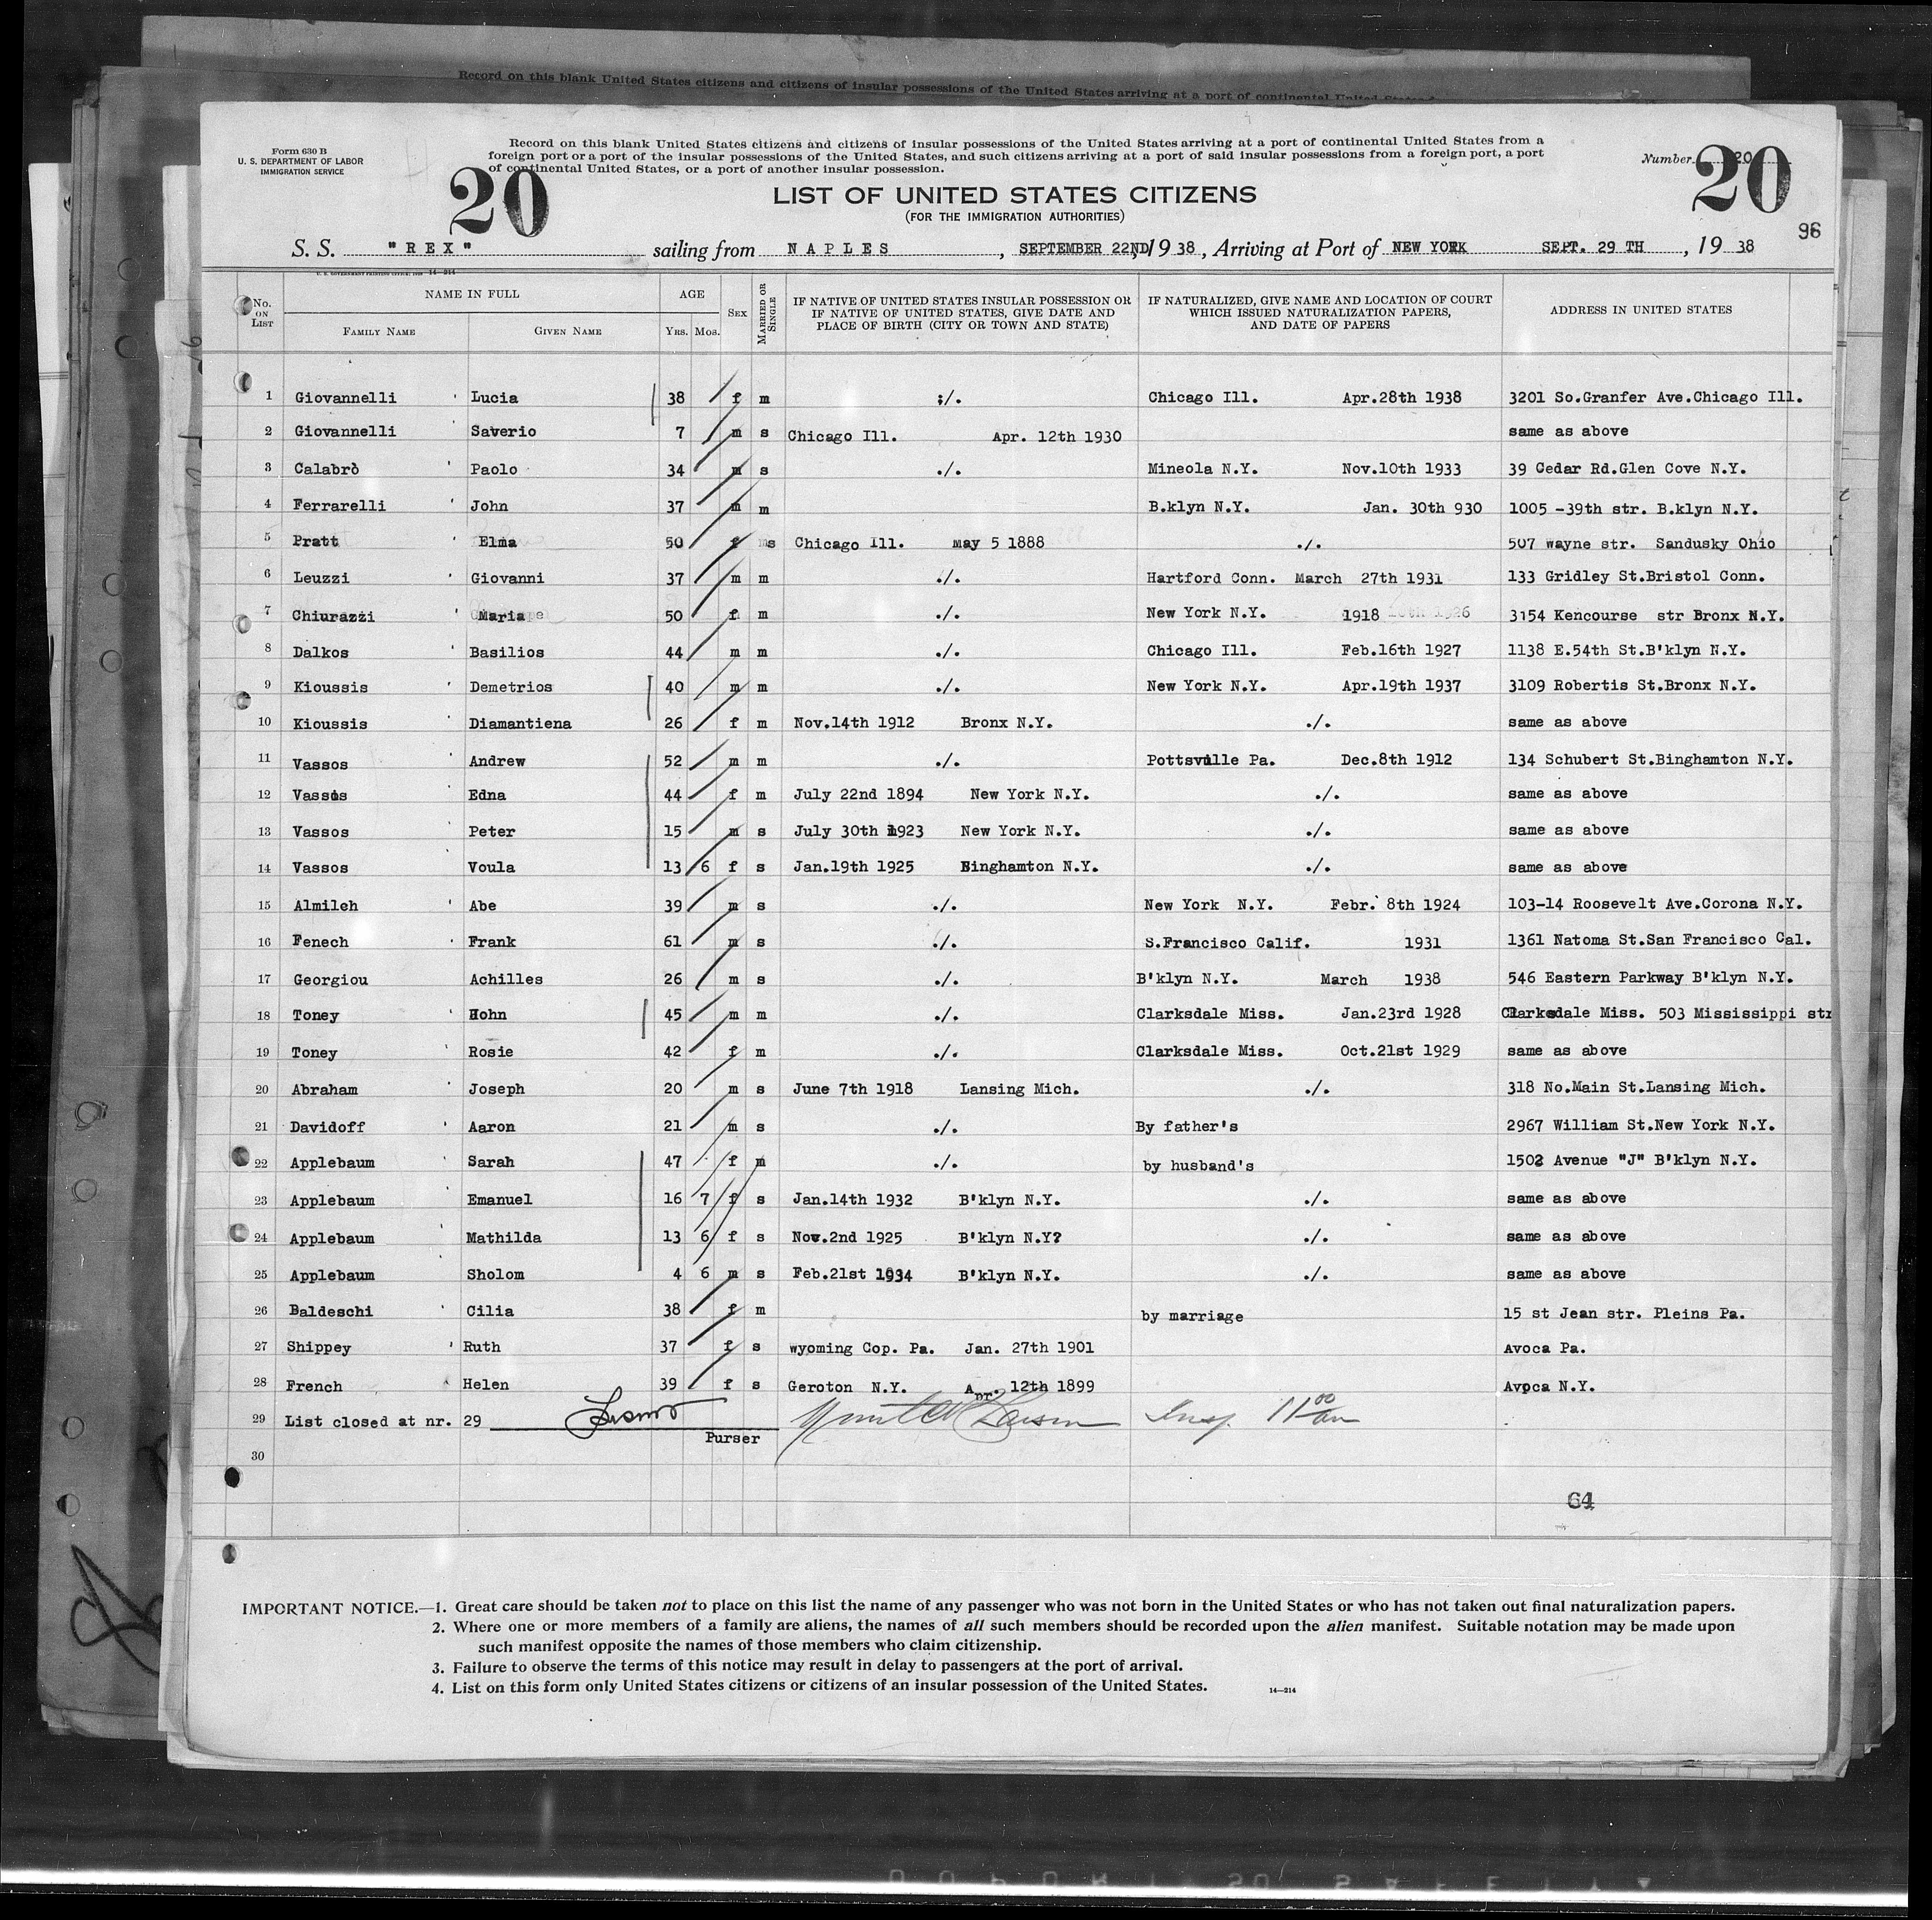 Record on this blank United States citizens and citizens of insular possessions of the United States arriving at a port of continental United States
Form 630 B
U. S. DEPARTMENT OF LABOR
IMMIGRATION SERVICE
Record on this blank United States citizens and citizens of insular possessions of the United States arriving at a port of continental United States from a
foreign port or a port of the insular possessions of the United States, and such citizens arriving at a port of said insular possessions from a foreign port, a port
of continental United States, or a port of another insular possession.
Number 20
20 20
LIST OF UNITED STATES CITIZENS
(FOR THE IMMIGRATION AUTHORITIES)
96
S. S. "REX" sailing from NAPLES, SEPTEMBER 22ND, 1938, Arriving at Port of NEW YORK SEPT. 29 TH, 1938
No. ON LIST NAME IN FULL AGE SEX MARRIED OR SINGLE IF NATIVE OF UNITED STATES INSULAR POSSESSION OR IF NATIVE OF UNITED STATES, GIVE DATE AND PLACE OF BIRTH (CITY OR TOWN AND STATE) IF NATURALIZED, GIVE NAME AND LOCATION OF COURT WHICH ISSUED NATURALIZATION PAPERS, AND DATE OF PAPERS ADDRESS IN UNITED STATES
FAMILY NAME GIVEN NAME YRS. MOS.
1 Giovannelli Lucia 38 f m ;/. Chicago Ill. Apr.28th 1938 3201 So.Granfer Ave.Chicago Ill.
2 Giovannelli Saverio 7 m s Chicago Ill. Apr. 12th 1930 same as above
3 Calabrò Paolo 34 m s ./. Mineola N.Y. Nov.10th 1933 39 Cedar Rd.Glen Cove N.Y.
4 Ferrarelli John 37 m m B.klyn N.Y. Jan. 30th 930 1005 -39th str. B.klyn N.Y.
5 Pratt Elma 50 f s Chicago Ill. may 5 1888 ./. 507 wayne str. Sandusky Ohio
6 Leuzzi Giovanni 37 m m ./. Hartford Conn. March 27th 1931 133 Gridley St.Bristol Conn.
7 Chiurazzi Maria 50 f m ./. New York N.Y. 1918 3154 Kencourse str Bronx N.Y.
8 Dalkos Basilios 44 m m ./. Chicago Ill. Feb.16th 1927 1138 E.54th St.B'klyn N.Y.
9 Kioussis Demetrios 40 m m ./. New York N.Y. Apr.19th 1937 3109 Robertis St.Bronx N.Y.
10 Kioussis Diamantiena 26 f m Nov.14th 1912 Bronx N.Y. ./. same as above
11 Vassos Andrew 52 m m ./. Pottsville Pa. Dec.8th 1912 134 Schubert St.Binghamton N.Y.
12 Vassos Edna 44 f m July 22nd 1894 New York N.Y. ./. same as above
13 Vassos Peter 15 m s July 30th 1923 New York N.Y. ./. same as above
14 Vassos Voula 13 6 f s Jan.19th 1925 Binghamton N.Y. ./. same as above
15 Almileh Abe 39 m s ./. New York N.Y. Febr. 8th 1924 103-14 Roosevelt Ave.Corona N.Y.
16 Fenech Frank 61 m s ./. S.Francisco Calif. 1931 1361 Natoma St.San Francisco Cal.
17 Georgiou Achilles 26 m s ./. B'klyn N.Y. March 1938 546 Eastern Parkway B'klyn N.Y.
18 Toney Hohn 45 m m ./. Clarksdale Miss. Jan.23rd 1928 Clarksdale Miss. 503 Mississippi str
19 Toney Rosie 42 f m ./. Clarksdale Miss. Oct.21st 1929 same as above
20 Abraham Joseph 20 m s June 7th 1918 Lansing Mich. ./. 318 No.Main St.Lansing Mich.
21 Davidoff Aaron 21 m s ./. By father's 2967 William St.New York N.Y.
22 Applebaum Sarah 47 f m ./. by husband's 1502 Avenue "J" B'klyn N.Y.
23 Applebaum Emanuel 16 7 f s Jan.14th 1932 B'klyn N.Y. ./. same as above
24 Applebaum Mathilda 13 6 f s Nov.2nd 1925 B'klyn N.Y? ./. same as above
25 Applebaum Sholom 4 6 m s Feb.21st 1934 B'klyn N.Y. ./. same as above
26 Baldeschi Cilia 38 f m by marriage 15 st Jean str. Pleins Pa.
27 Shippey Ruth 37 f s wyoming Cop. Pa. Jan. 27th 1901 Avoca Pa.
28 French Helen 39 f s Geroton N.Y. Apr. 12th 1899 Avoca N.Y.
29 List closed at nr. 29 Insp. 11 00 am
Purser
30
64
IMPORTANT NOTICE.—1. Great care should be taken not to place on this list the name of any passenger who was not born in the United States or who has not taken out final naturalization papers.
2. Where one or more members of a family are aliens, the names of all such members should be recorded upon the alien manifest. Suitable notation may be made upon
such manifest opposite the names of those members who claim citizenship.
3. Failure to observe the terms of this notice may result in delay to passengers at the port of arrival.
4. List on this form only United States citizens or citizens of an insular possession of the United States. 14—214